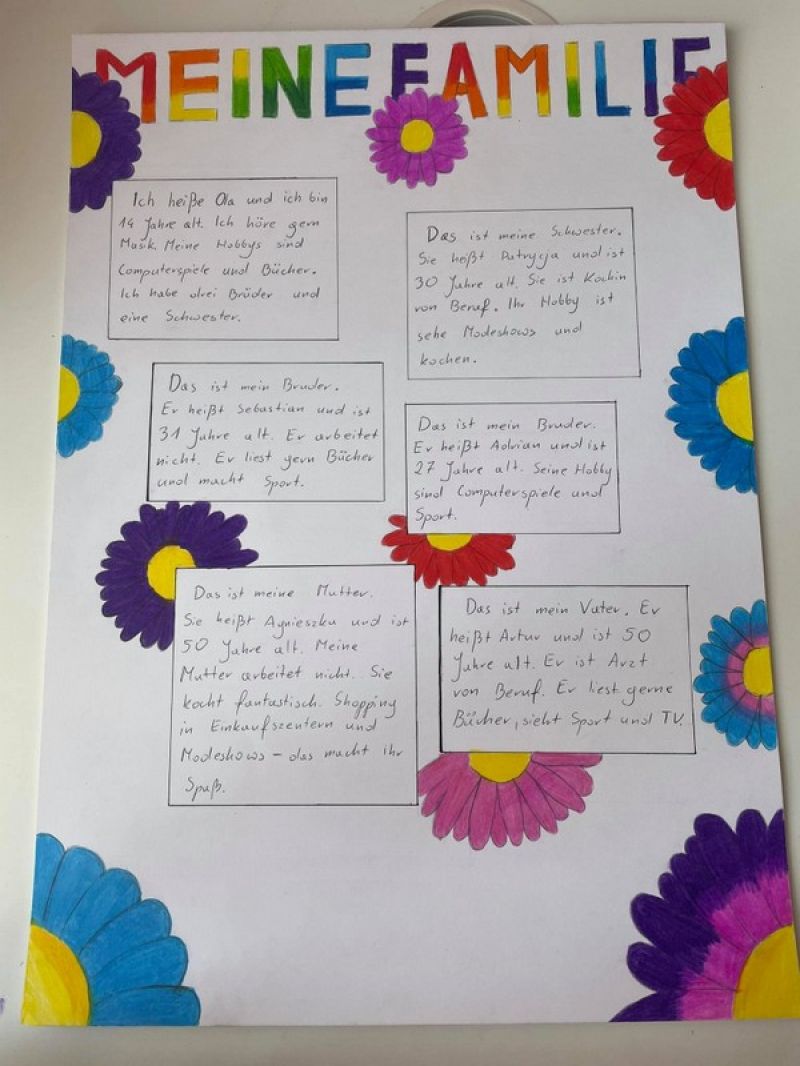 MEINE FAMILIE
Ich heiße Ola und ich bin
14 Jahre alt. Ich höre gern
Musik. Meine Hobbys sind
Computerspiele und Bücher.
Ich habe drei Brüder und
eine Schwester.
Das ist meine Schwester.
Sie heißt Patrycja und ist
30 Jahre alt. Sie ist Kochin
von Beruf. Ihr Hobby ist
sehe Modeshows und
kochen.
Das ist mein Bruder.
Er heißt Sebastian und ist
31 Jahre alt. Er arbeitet
nicht. Er liest gern Bücher
und macht Sport.
Das ist mein Bruder.
Er heißt Adrian und ist
27 Jahre alt. Seine Hobby
sind Computerspiele und
Sport.
Das ist meine Mutter.
Sie heißt Agnieszka und ist
50 Jahre alt. Meine
Mutter arbeitet nicht. Sie
kocht fantastisch. Shopping
in Einkaufszentern und
Modeshows – das macht ihr
Spaß.
Das ist mein Vater. Er
heißt Artur und ist 50
Jahre alt. Er ist Arzt
von Beruf. Er liest gerne
Bücher, sieht Sport und TV.